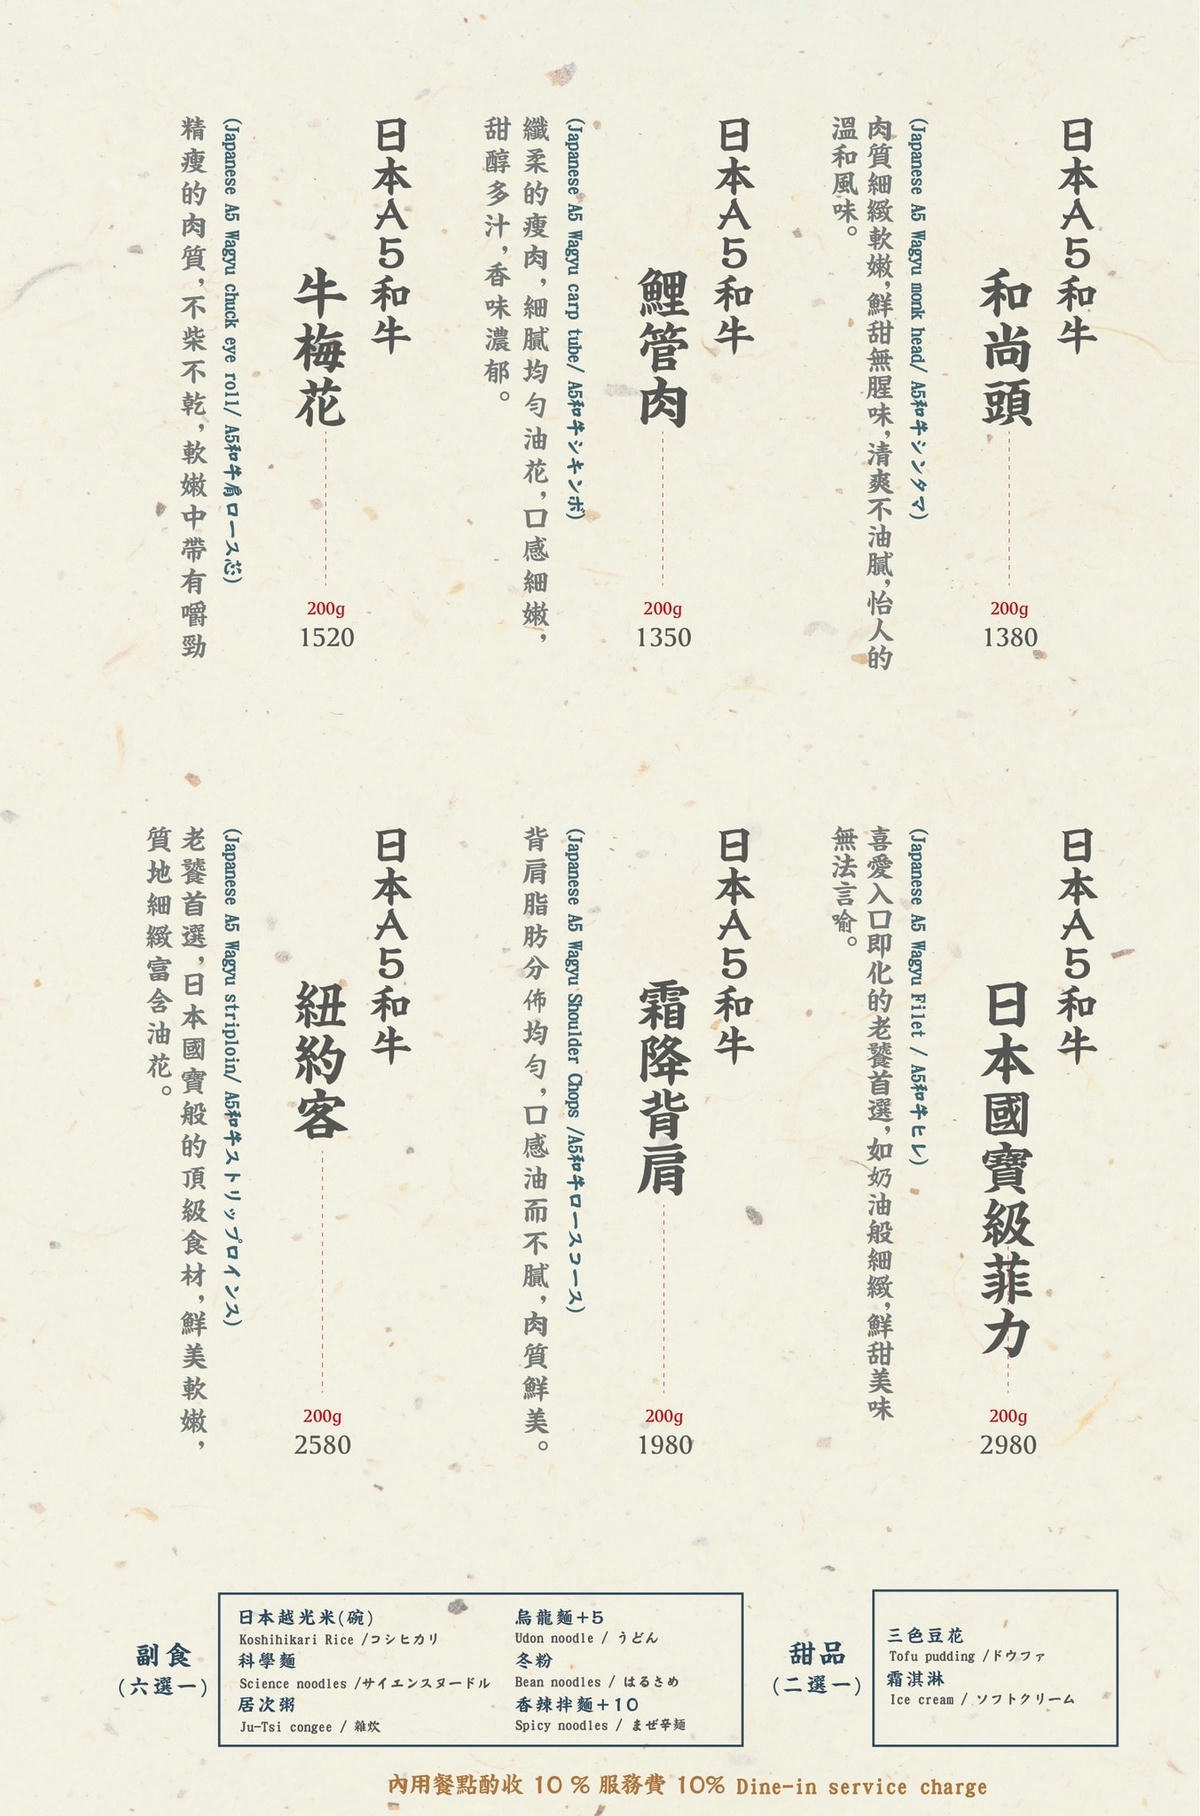 日本A5和牛
和尚頭
200g
1380
(Japanese A5 Wagyu monk head/ A5和牛シンタマ)
肉質細緻軟嫩,鮮甜無腥味,清爽不油膩,怡人的
溫和風味。
日本A5和牛
鯉管肉
200g
1350
(Japanese A5 Wagyu carp tube/ A5和牛シキンボ)
纖柔的瘦肉,細膩均勻油花,口感細嫩,
甜醇多汁,香味濃郁。
日本A5和牛
牛梅花
200g
1520
(Japanese A5 Wagyu chuck eye roll/ A5和牛肩ロース芯)
精瘦的肉質,不柴不乾,軟嫩中帶有嚼勁
日本A5和牛
日本國寶級菲力
200g
2980
(Japanese A5 Wagyu Filet / A5和牛ヒレ)
喜愛入口即化的老饕首選,如奶油般細緻,鮮甜美味
無法言喻。
日本A5和牛
霜降背肩
200g
1980
(Japanese A5 Wagyu Shoulder Chops /A5和牛ロースコース)
背肩脂肪分佈均勻,口感油而不膩,肉質鮮美。
日本A5和牛
紐約客
200g
2580
(Japanese A5 Wagyu striploin/ A5和牛ストリップロインス)
老饕首選,日本國寶般的頂級食材,鮮美軟嫩,
質地細緻富含油花。
副食
(六選一)
日本越光米(碗)
Koshihikari Rice /コシヒカリ
科學麵
Science noodles /サイエンスヌードル
居次粥
Ju-Tsi congee / 雜炊
烏龍麵+5
Udon noodle / うどん
冬粉
Bean noodles / はるさめ
香辣拌麵+10
Spicy noodles / まぜ辛麵
甜品
(二選一)
三色豆花
Tofu pudding /ドウファ
霜淇淋
Ice cream / ソフトクリーム
內用餐點酌收 10 % 服務費 10% Dine-in service charge